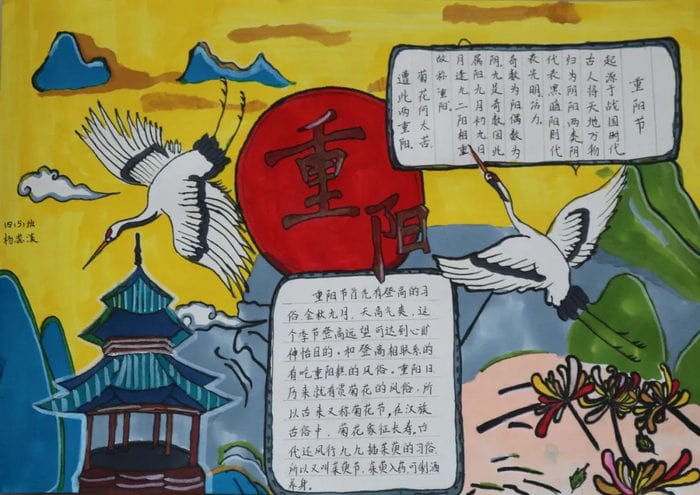 重阳
重阳节
起源于战国时代
古人将天地万物
归为阴阳两类阴
代表黑暗阳则代
表光明活力。
奇数为阳偶数为
阴九是奇数因此
属阳九月初九日
月逢九二阳相重
故称重阳。
菊花何太苦
遭此两重阳。
四(5)班
重阳节首先有登高的习
俗金秋九月,天高气爽,这
个季节登高远望可达到心旷
伸怡目的。和登高相联系的
有吃重阳糕的风俗。重阳日
历来就有赏菊花的风俗,所
以古来又称菊花节,在汉族
古俗中,菊花象征长寿,古
代还风行九九插茱萸的习俗,
所以又叫茱萸节,茱萸入药,可制酒
养身。